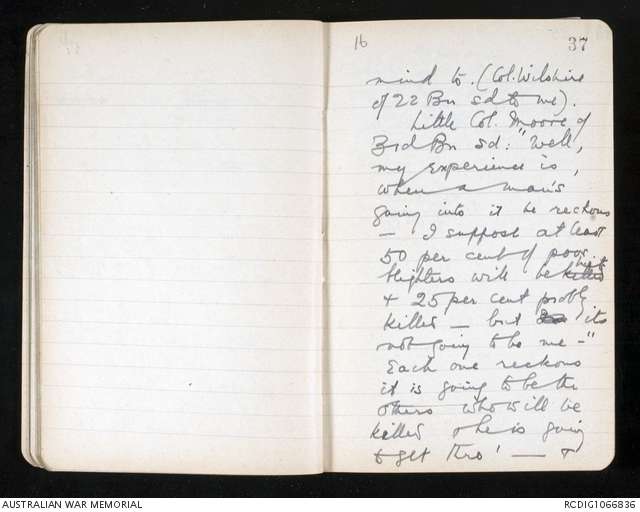 16
37
mind to. (Col. Wilshire
of 22 Bn sd to me).
Little Col. Moore of
3rd Bn sd: "Well,
my experience is,
when a man's
going into it he reckons
— I suppose at least
50 per cent of poor
blighters will be hit
+ 25 per cent probly
killed — but its
not going to be me —"
Each one reckons
it is going to be the
others who will be
killed & he is going
to get thro' — &
AUSTRALIAN WAR MEMORIAL
RCDIG1066836